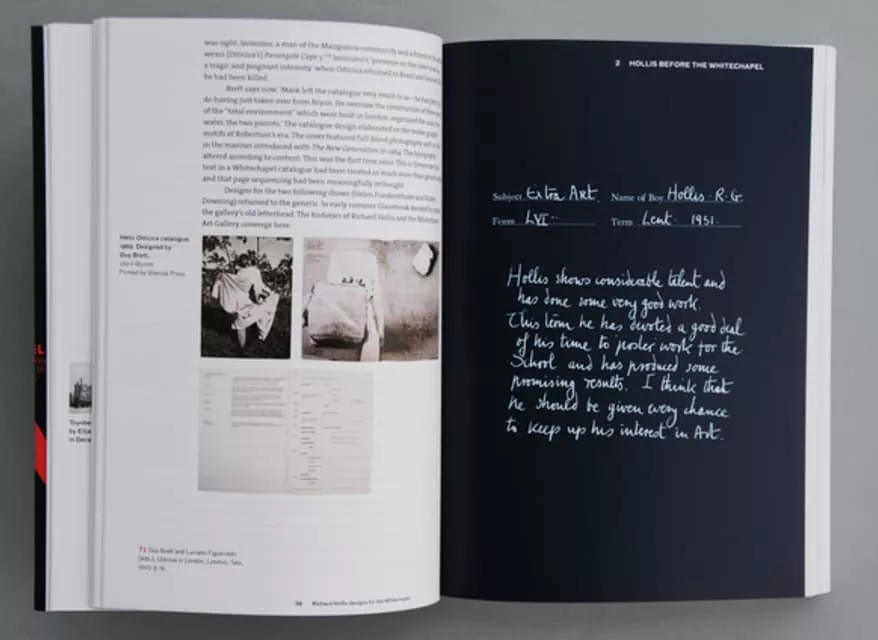 was right. Jeronimo, a man of the Mangueira community and a friend of
wears [Oiticica's] Parangolé Cape 5.
a tragic and poignant intensity' when Oiticica returned to Brazil and
he had been killed.
Brett says now, 'Mark left the catalogue very much to us – he had
do having just taken over from Bryan. He oversaw the construction of
of the "total environment" which were built in London, organized the sand, the
water, the two parrots.' The catalogue design elaborated on the
motifs of Robertson's era. The cover featured full-bleed photography
in the manner introduced with The New Generation in 1964. The typography
altered according to content. This was the first time since This is Tomorrow
text in a Whitechapel catalogue had been treated as much more than
and that page sequencing had been meaningfully rethought.
Designs for the two following shows (Helen Frankenthaler and
Downing) returned to the generic. In early summer Glazebrook decided to
the gallery's old letterhead. The histories of Richard Hollis and the Whitechapel
Art Gallery converge here.
Hélio Oiticica catalogue,
1969. Designed by
Guy Brett.
Printed by Shenval Press.
Toynbee
by Eliza
in Dece
Guy Brett and Luciano Figueiredo
(eds.), Oiticica in London, London, Tate,
2007, p.
Richard Hollis designs for the Whitechapel
2 HOLLIS BEFORE THE WHITECHAPEL
Subject Extra Art. Name of Boy Hollis. R. G.
Form LVI Term Lent 1951.
Hollis shows considerable talent and
has done some very good work.
This term he has devoted a good deal
of his time to poster work for the
School and has produced some
promising results. I think that
he should be given every chance
to keep up his interest in Art.